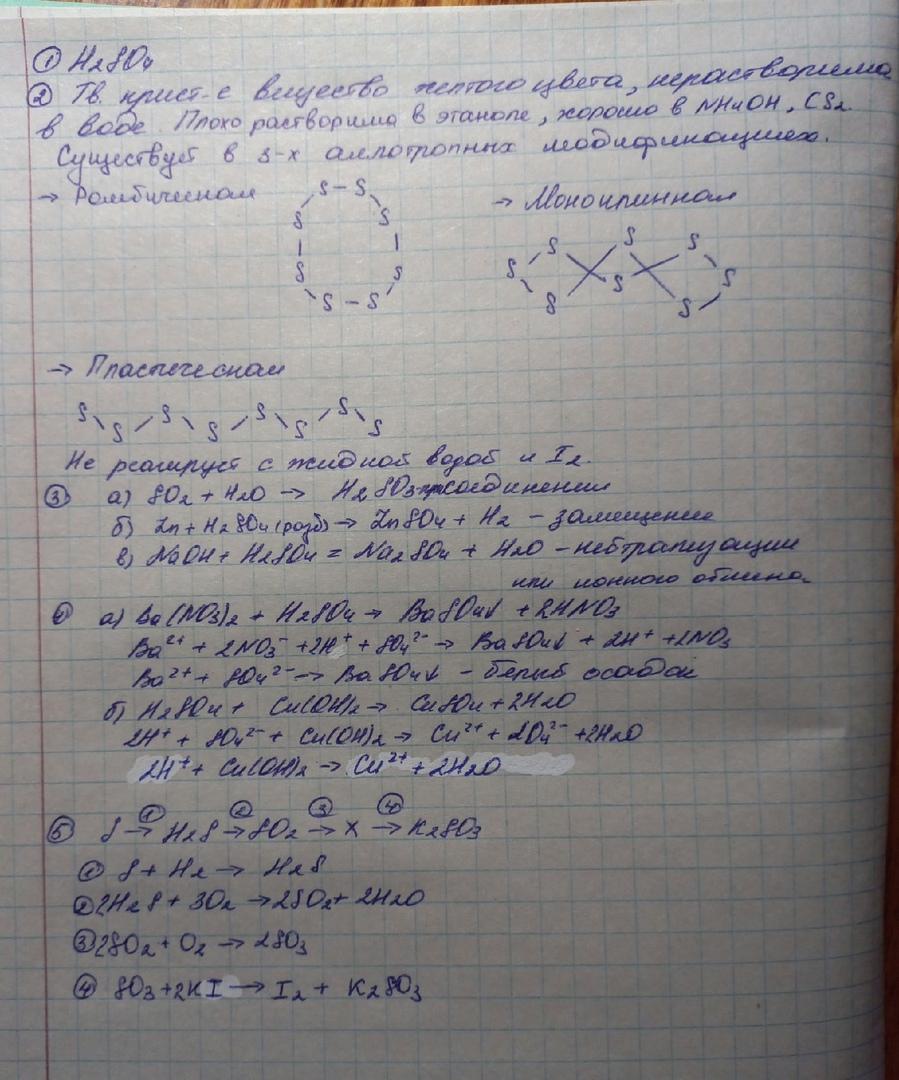 ① H2SO4
② Тв. крист-е вещество желтого цвета, нерастворима
в воде. Плохо растворима в этаноле, хорошо в NH4OH, CS2.
Существует в 3-х аллотропных модификациях.
→ Ромбическая → Моноклинная
S – S
S S
S S
S – S
S S S
S S S
S S
→ Пластическая
S S S S
S S S S
Не реагирует с жидкой водой и I2.
③ а) SO2 + H2O → H2SO3 - соединения
б) Zn + H2SO4(разб) → ZnSO4 + H2 – замещение
в) NaOH + H2SO4 = Na2SO4 + H2O – нейтрализации
или ионного обмена
④ а) Ba(NO3)2 + H2SO4 → BaSO4↓ + 2HNO3
Ba²⁺ + 2NO3⁻ + 2H⁺ + SO4²⁻ → BaSO4↓ + 2H⁺ + 2NO3
Ba²⁺ + SO4²⁻ → BaSO4↓ – белый осадок
б) H2SO4 + Cu(OH)2 → CuSO4 + 2H2O
2H⁺ + SO4²⁻ + Cu(OH)2 → Cu²⁺ + SO4²⁻ + 2H2O
2H⁺ + Cu(OH)2 → Cu²⁺ + 2H2O
⑤ S →① H2S →② SO2 →③ X →④ K2SO3
① S + H2 → H2S
② 2H2S + 3O2 → 2SO2 + 2H2O
③ 2SO2 + O2 → 2SO3
④ SO3 + 2KI → I2 + K2SO3